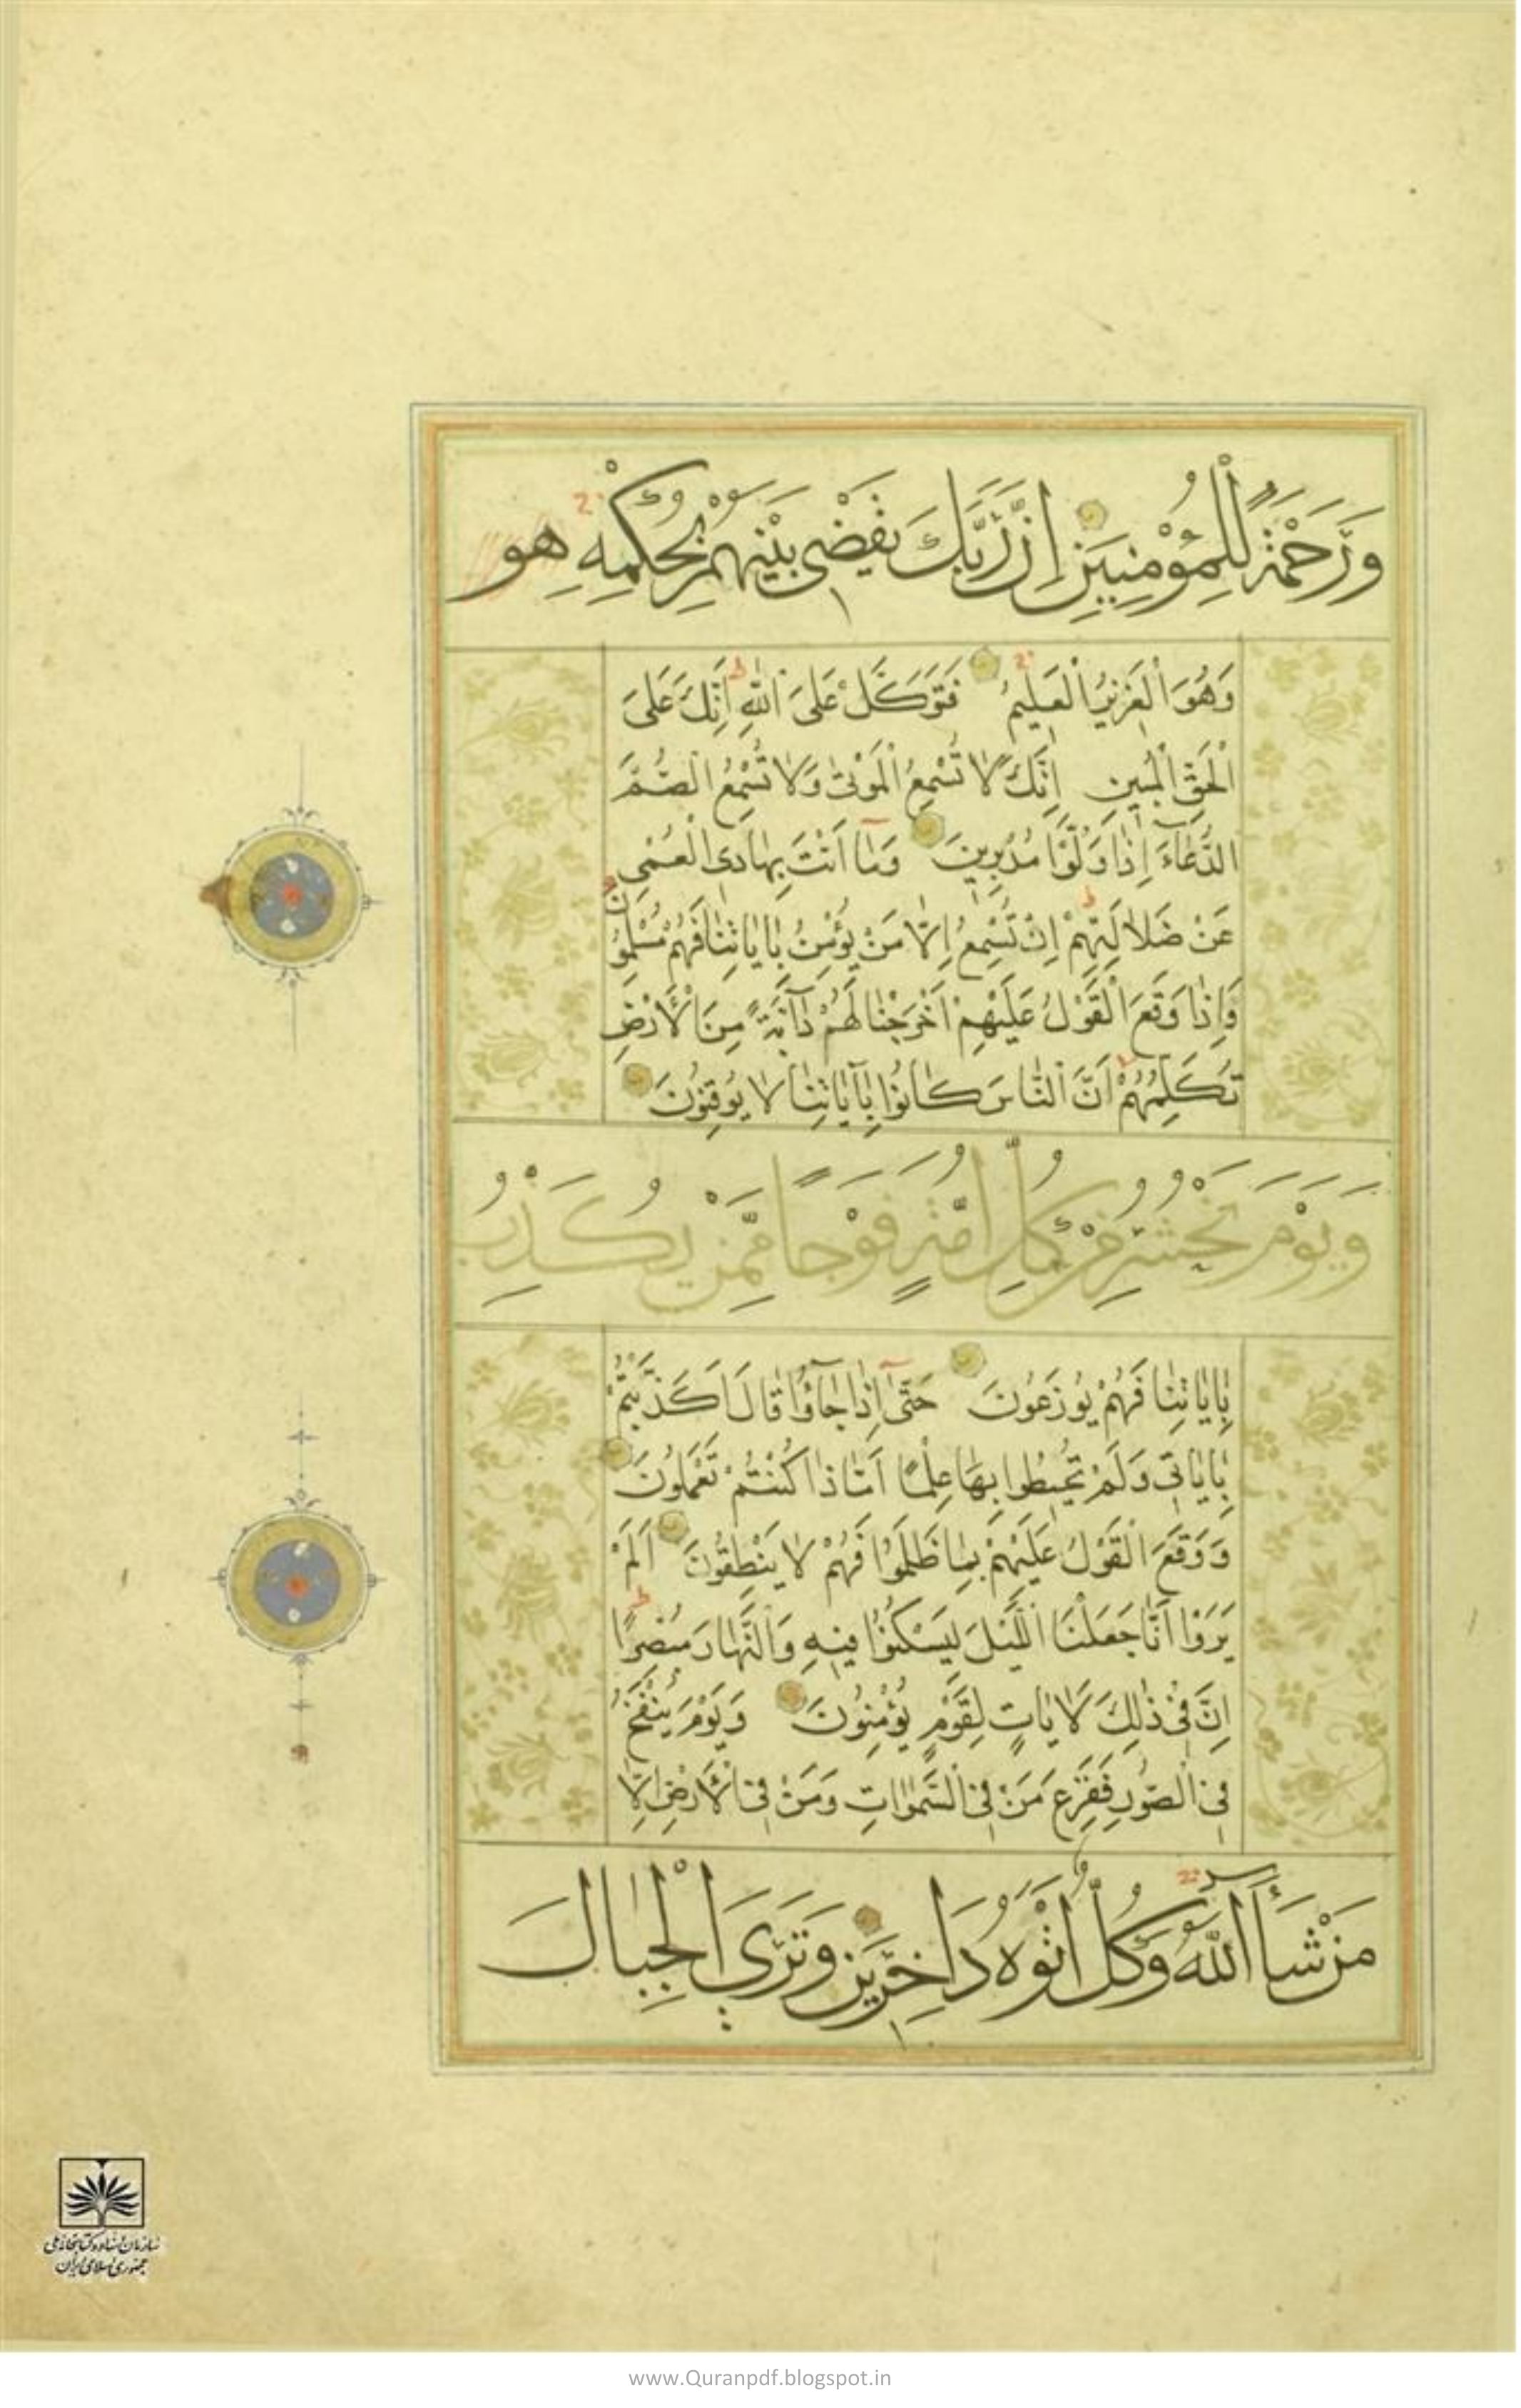 وَرَحْمَةً لِلْمُؤْمِنِينَ اِنَّ رَبَّكَ يَقْضِي بَيْنَهُمْ بِحُكْمِهِ هو
وَهُوَ الْعَزِيزُ الْعَلِيمُ فَتَوَكَّلْ عَلَى اللّٰهِ اِنَّكَ عَلَى
الْحَقِّ الْمُبِينِ اِنَّكَ لَا تُسْمِعُ الْمَوْتٰى وَلَا تُسْمِعُ الصُّمَّ
الدُّعَاءَ اِذَا وَلَّوْا مُدْبِرِينَ وَمَا اَنْتَ بِهَادِى الْعُمْىِ
عَنْ ضَلَالَتِهِمْ اِنْ تُسْمِعُ اِلَّا مَنْ يُؤْمِنُ بِاٰيَاتِنَا فَهُمْ مُسْلِمُونَ
وَاِذَا وَقَعَ الْقَوْلُ عَلَيْهِمْ اَخْرَجْنَا لَهُمْ دَآبَّةً مِنَ الْاَرْضِ
تُكَلِّمُهُمْ اَنَّ النَّاسَ كَانُوا بِاٰيَاتِنَا لَا يُوقِنُونَ
وَيَوْمَ نَحْشُرُ مِنْ كُلِّ اُمَّةٍ فَوْجًا مِمَّنْ يُكَذِّبُ
بِاٰيَاتِنَا فَهُمْ يُوزَعُونَ حَتّٰى اِذَا جَآؤُا قَالَ اَكَذَّبْتُمْ
بِاٰيَاتِى وَلَمْ تُحِيطُوا بِهَا عِلْمًا اَمَّا ذَا كُنْتُمْ تَعْمَلُونَ
وَوَقَعَ الْقَوْلُ عَلَيْهِمْ بِمَا ظَلَمُوا فَهُمْ لَا يَنْطِقُونَ اَلَمْ
يَرَوْا اَنَّا جَعَلْنَا اللَّيْلَ لِيَسْكُنُوا فِيهِ وَالنَّهَارَ مُبْصِرًا
اِنَّ فِى ذٰلِكَ لَاٰيَاتٍ لِقَوْمٍ يُؤْمِنُونَ وَيَوْمَ يُنْفَخُ
فِى الصُّورِ فَفَزِعَ مَنْ فِى السَّمٰوَاتِ وَمَنْ فِى الْاَرْضِ اِلَّا
مَنْ شَآءَ اللّٰهُ وَكُلٌّ اَتَوْهُ دَاخِرِينَ وَتَرَى الْجِبَالَ
سازمان اسناد و کتابخانه ملی
جمهوری اسلامی ایران
www.Quranpdf.blogspot.in